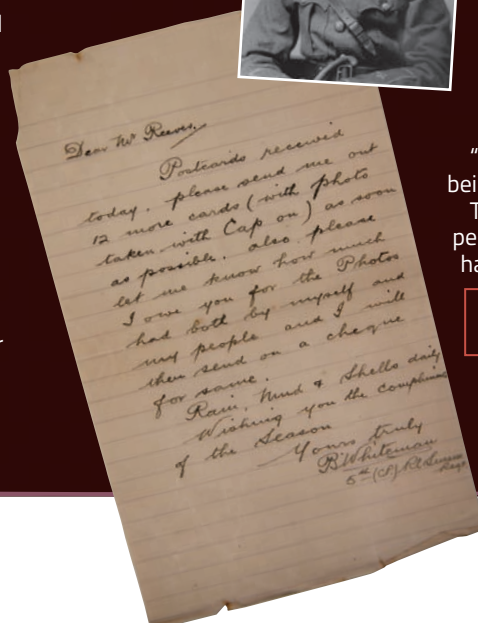 Dear Mr Reeves,
Postcards received
today. please send me out
12 more cards (with photo
taken with Cap on) as soon
as possible. also please
let me know how much
I owe you for the Photos
had both by myself and
my people and I will
then send on a cheque
for same.
Rain, Mud & Shells daily
Wishing you the
of the Season
Yours truly
B Whiteman
5th (C) Rl Sussex
Regt
“
bei
T
pe
ha